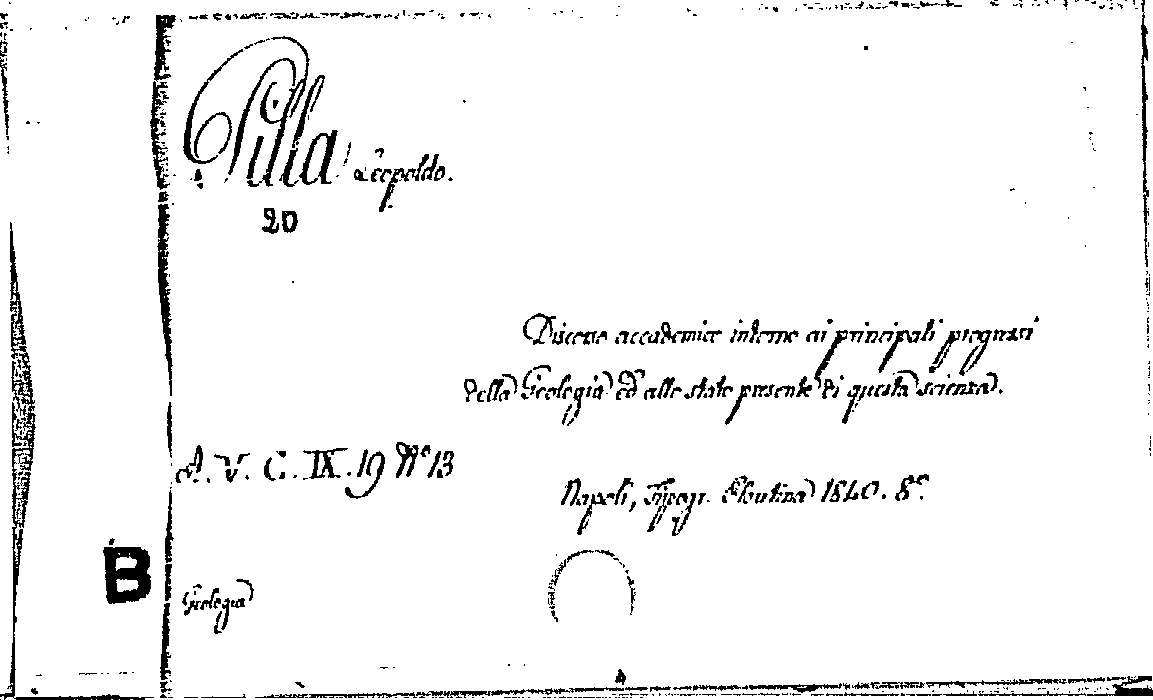 Pilla Leopoldo.
20
Discorso accademico intorno ai principali progressi
della Geologia ed allo stato presente di questa scienza.
A. V. C. IX. 19 N° 13
Napoli, Tipogr. Flautina 1840. 8°.
B
Geologia